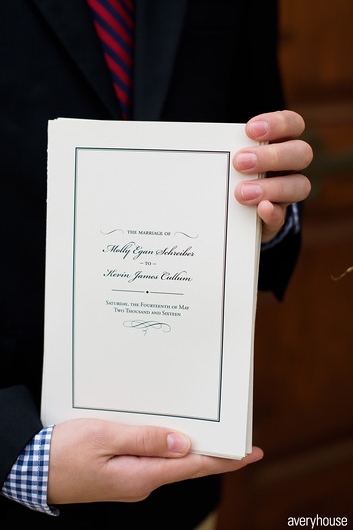 THE MARRIAGE OF
Molly Egan Schreiber
– TO –
Kevin James Cullum
SATURDAY, THE FOURTEENTH OF MAY
TWO THOUSAND AND SIXTEEN
averyhouse